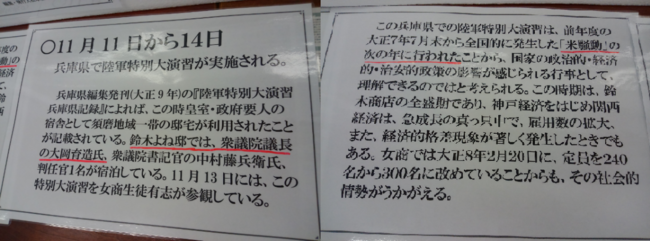 ○11月11日から14日
兵庫県で陸軍特別大演習が実施される。
兵庫県編集発刊(大正9年)の『陸軍特別大演習
兵庫県記録』によれば、この時皇室・政府要人の
宿舎として須磨地域一帯の邸宅が利用されたこと
が記載されている。鈴木よね邸では、衆議院議長
の大岡育造氏、衆議院書記官の中村藤兵衛氏、
判任官1名が宿泊している。11月13日には、この
特別大演習を女商生徒有志が参観している。
この兵庫県での陸軍特別大演習は、前年度の
大正7年7月末から全国的に発生した「米騒動」の
次の年に行われたことから、国家の政治的・経済
的・治安的政策の影響が感じられる行事として、
理解できるのではと考えられる。この時期は、鈴
木商店の全盛期であり、神戸経済をはじめ関西
経済は、急成長の真っ只中で、雇用数の拡大、
また、経済的格差現象が著しく発生したときでも
ある。女商では大正8年2月20日に、定員を240
名から300名に改めていることからも、その社会的
情勢がうかがえる。